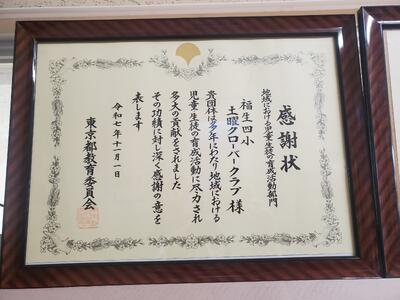 感謝状
地域における児童・生徒の育成活動部門
福生四小
土曜クローバークラブ 様
貴団体は多年にわたり地域における
児童・生徒の育成活動に尽力され
多大の貢献をされました
その功績に対し深く感謝の意を
表します
令和七年十一月一日
東京都教育委員会